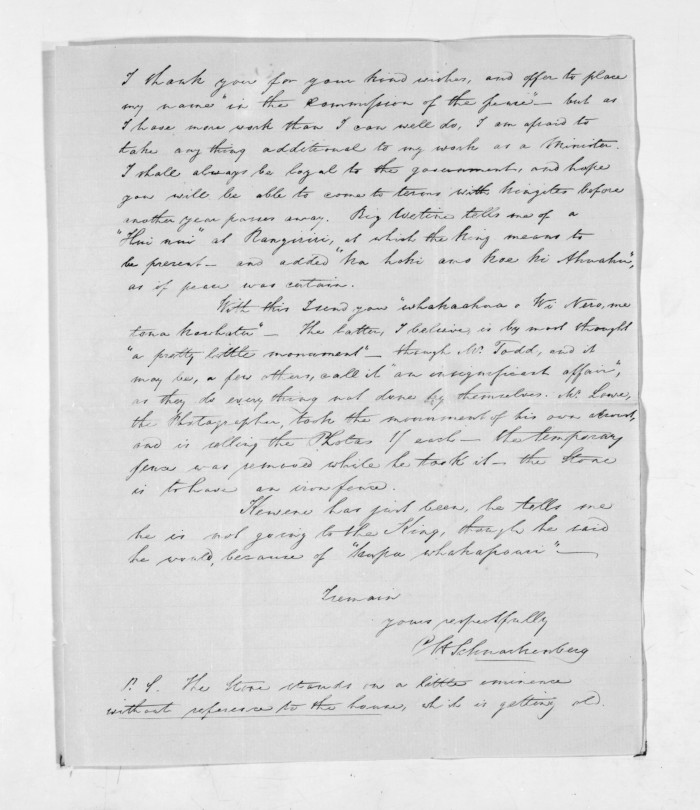 I thank you for your kind wishes, and offer to place
my name "in the commission of the peace" - but as
I have more work than I can well do, I am afraid to
take any thing additional to my work as a Minister.
I shall always be loyal to the government, and hope
you will be able to come to terms with Kingites before
another year passes away. Big Wetine tells me of a
"Hui nui" at Rangiriri, at which the King means to
be present - and added "ka hoki ano koe ki Ahuahu",
as if peace was certain.
With this I send you "whakaahua o Wi Nero, me
tona kowhatu" - The latter, I believe, is by most thought
"a pretty little monument" - though Mr. Todd, and it
may be, a few others, call it "an insignificant affair",
as they do everything not done by themselves. Mr. Lowe,
the Photographer, took the monument of his own accord,
and is selling the Photos 1/ each - the temporary
fence was removed while he took it - the Stone
is to have an iron fence.
Hewene has just been, he tells me
he is not going to the King, though he said
he would, because of "kupu whakapouri" -
I remain
yours respectfully
C H Schnackenberg
P. S. The Stone stands on a little eminence
without reference to the house, wh: is getting old.